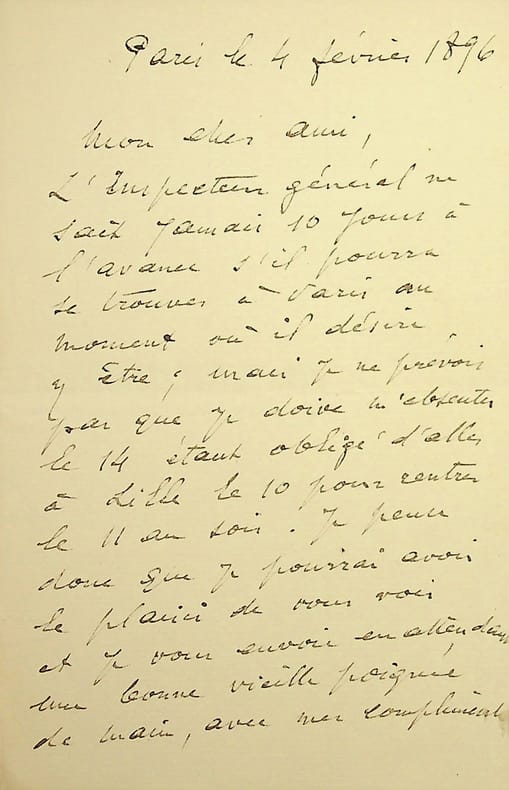 Paris le 4 février 1896
Mon cher ami,
L'Inspecteur général ne
sait jamais 10 jours à
l'avance s'il pourra
se trouver à Paris au
moment où il désire
y être ; mais je ne prévois
pas que je doive m'absenter
le 14 étant obligé d'aller
à Lille le 10 pour rentrer
le 11 au soir. Je pense
donc que je pourrai avoir
le plaisir de vous voir
et je vous envoie en attendant
une bonne vieille poignée
de main, avec mes compliments